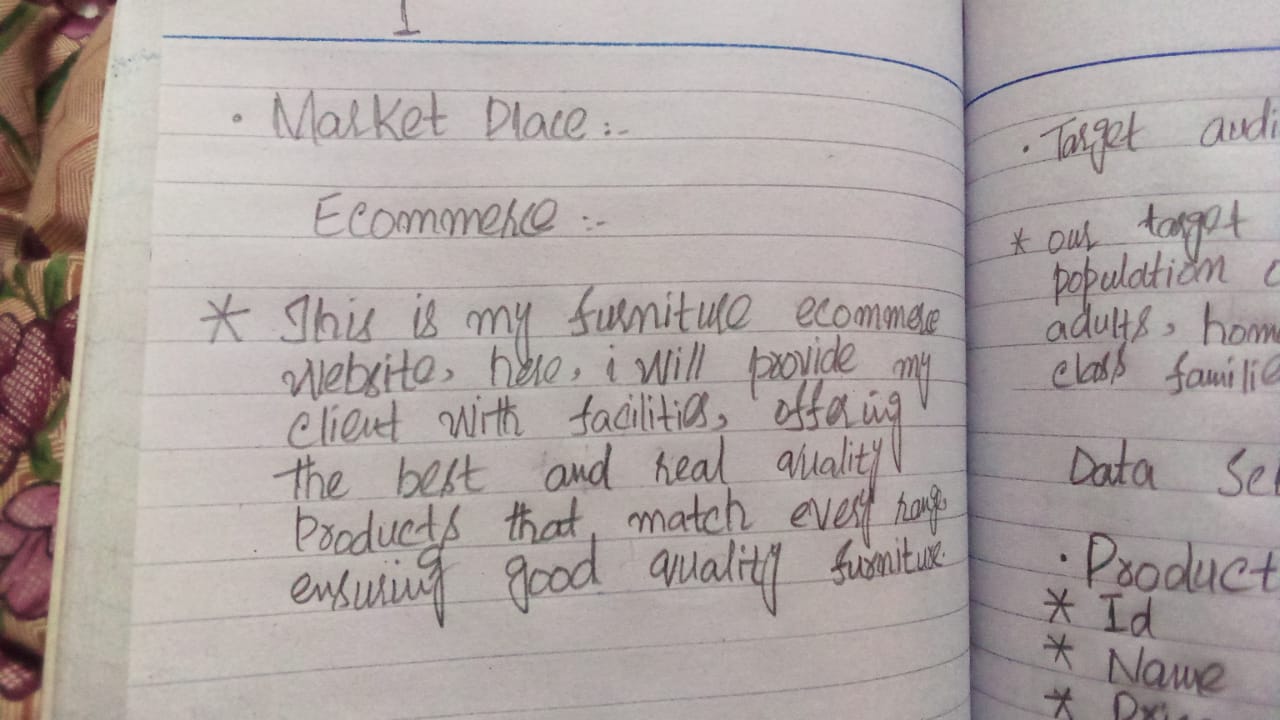 I
• Market Place :-
Ecommerce :-
* This is my furniture ecommerce
website, here, i will provide my
client with facilities, offering
the best and real quality
products that match every range
ensuring good quality furniture.
• Target audi
* our target
population
adults, hom
class familie
Data Sc
• Product
* Id
* Name
* Pri